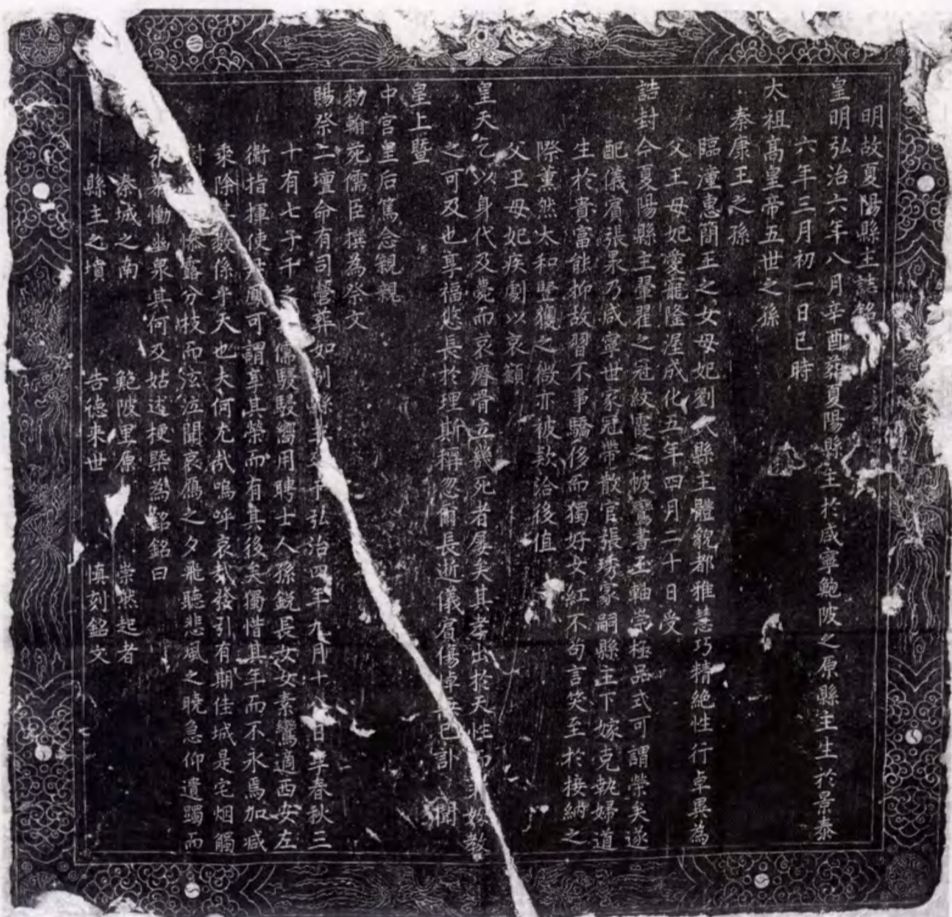 明故夏陽縣主誌銘
皇明弘治六年八月辛酉葬夏陽縣主於咸寧鮑陂之原縣主生於景泰
六年三月初一日巳時
太祖高皇帝五世之孫
秦康王之孫
臨潼惠簡王之女母妃劉 縣主體貌都雅慧巧精絶性行卓異為
父王母妃愛寵隆渥成化五年四月二十日受
誥封今夏陽縣主翬翟之冠紋霞之帔鸞書玉軸崇極品式可謂榮矣遂
配儀賓張杲乃咸寧世家冠帶散官張琇冢嗣縣主下嫁克執婦道
生於貴富能抑故習不事驕侈而獨好女紅不苟言笑至於接納之
際薫然太和臧獲之微亦彼款洽後值
父王母妃疾劇以哀籲
皇天乞以身代及薨而哀瘠骨立幾死者屢矣其孝出於天性
之可及也享福悠長於理斯稱忽爾長逝儀賓傷悼 已訃 聞
皇上暨
中宫皇后篤念親親
勑翰苑儒臣撰為祭文
賜祭二壇命有司營葬如制縣 弘治四年九月十 日 春秋三
十有七子千之 儒駸駸嚮用聘士人孫鋭長女女素鸞適西安左
衛指揮使 可謂享其榮而有其後矣獨惜其年而不永焉加減
乘除 數係乎天也夫何尤哉嗚呼哀哉發引有期佳城是宅烟觸
樹 慘露分枝而泫泣聞哀鴈之夕飛聽悲風之晚急仰遺躅而
慟幽泉其何及姑述梗槩為銘銘曰
秦城之南 鮑陂里原 崇然起者
縣主之墳 告德來世 慎刻銘文